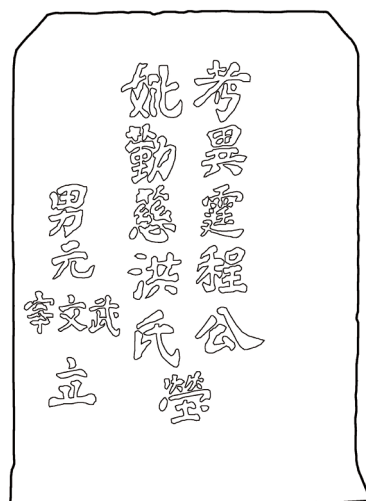 考異霆程公
妣勤慈洪氏
塋
男元
武文宰
立